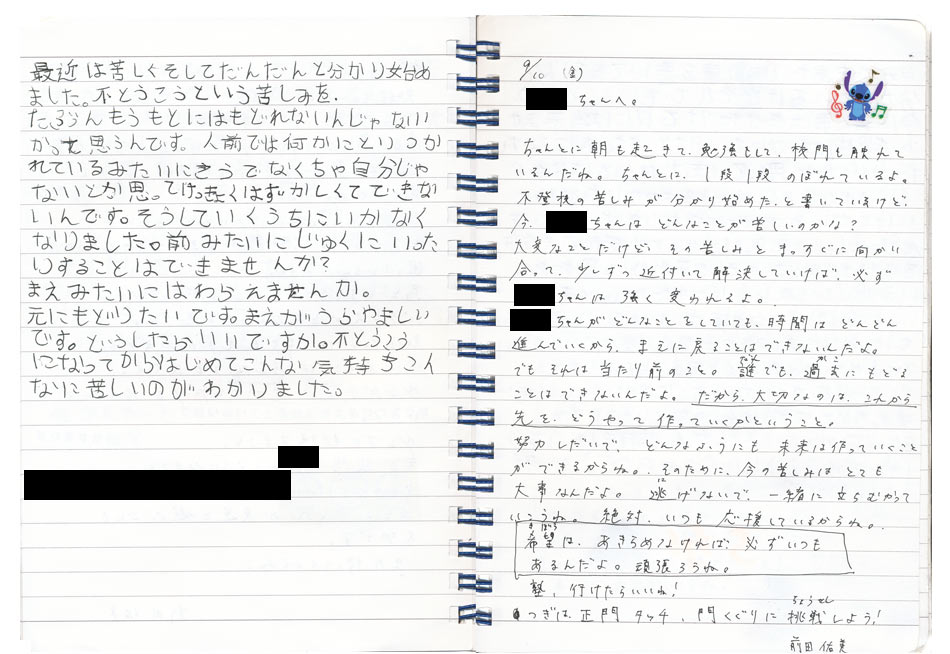 最近は苦しくそしてだんだんと分かり始め
ました。不とうこうという苦しみを.
たぶんもうもとにはもどれないんじゃない
かって思うんです。人前では何かにとりつか
れているみたいにそうでなくちゃ自分じゃ
ないとか思ってけっきょくはずかしくてできな
いんです。そうしていくうちにいかなく
なりました。前みたいにじゅくにいった
りすることはできませんか?
まえみたいにはわらえませんか。
元にもどりたいです。まえがうらやましい
です。どうしたらいいですか。不とうこう
になってからはじめてこんな気持ちこん
なに苦しいのがわかりました。
9/10 (金)
ちゃんへ。
ちゃんとに朝も起きて、勉強もして、校門も触れて
いるんだね。ちゃんとに、1段1段のぼれているよ。
不登校の苦しみが分かり始めた、と書いているけど、
今、ちゃんはどんなことが苦しいのかな?
大変なことだけど、その苦しみとまっすぐに向かい
合って、少しずつ近付いて解決していけば、必ず
ちゃんは強く変われるよ。
ちゃんがどんなことをしていても、時間はどんどん
進んでいくから、まえに戻ることはできないんだよ。
でもそれは当たり前のこと。誰でも、過去にもどる
ことはできないんだよ。だから、大切なのは、これから
先を、どうやって作っていくかということ。
努力しだいで、どんなふうにも未来は作っていくこと
ができるからね。そのために、今の苦しみはとても
大事なんだよ。逃げないで、一緒に立ちむかって
いこうね。絶対、いつも応援しているからね。
希望は、あきらめなければ、必ずいつも
あるんだよ。頑張ろうね。
塾、行けたらいいね!
つぎは、正門タッチ、門くぐりに挑戦しよう!
前田 佑美